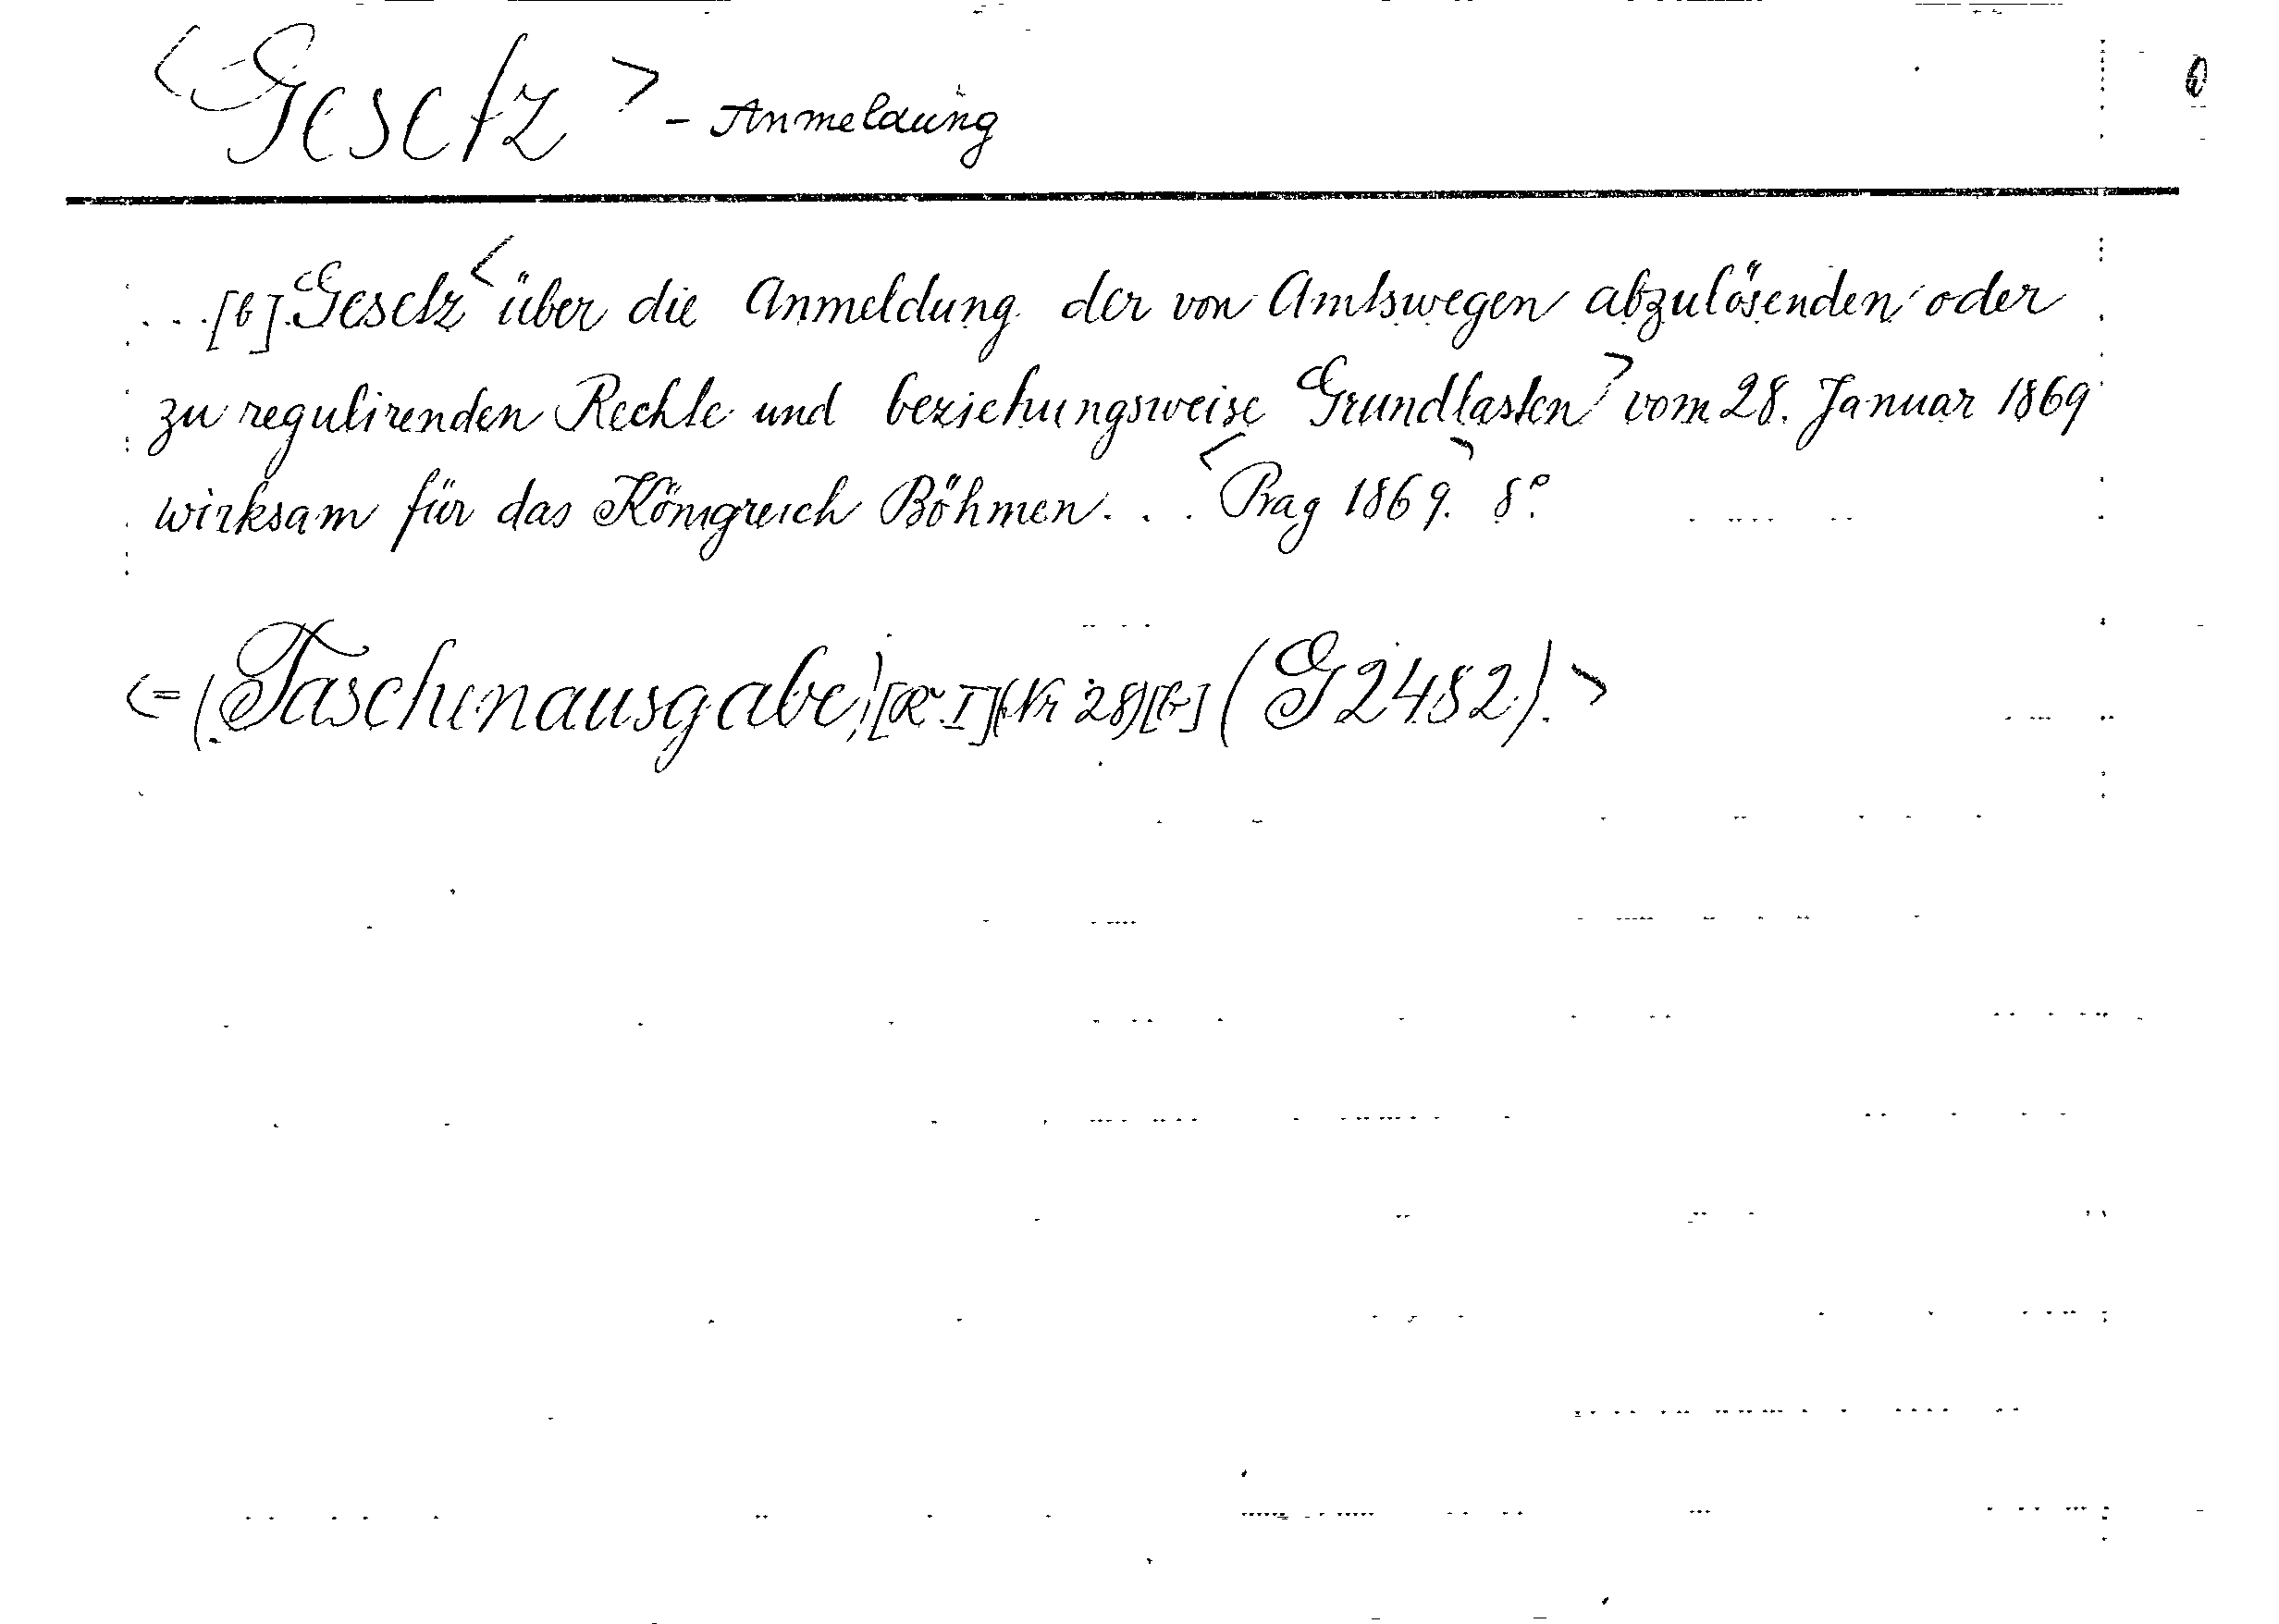 <Gesetz> - Anmeldung
...[b] Gesetz <über die Anmeldung der von Amtswegen abzulösenden oder
zu regulirenden Rechte und beziehungsweise Grundlasten> vom 28. Januar 1869
wirksam für das Königreich Böhmen... <Prag 1869.> 8°.
<=(Taschenausgabe,)[R. I](Nr 28)[b] (G 2482).>